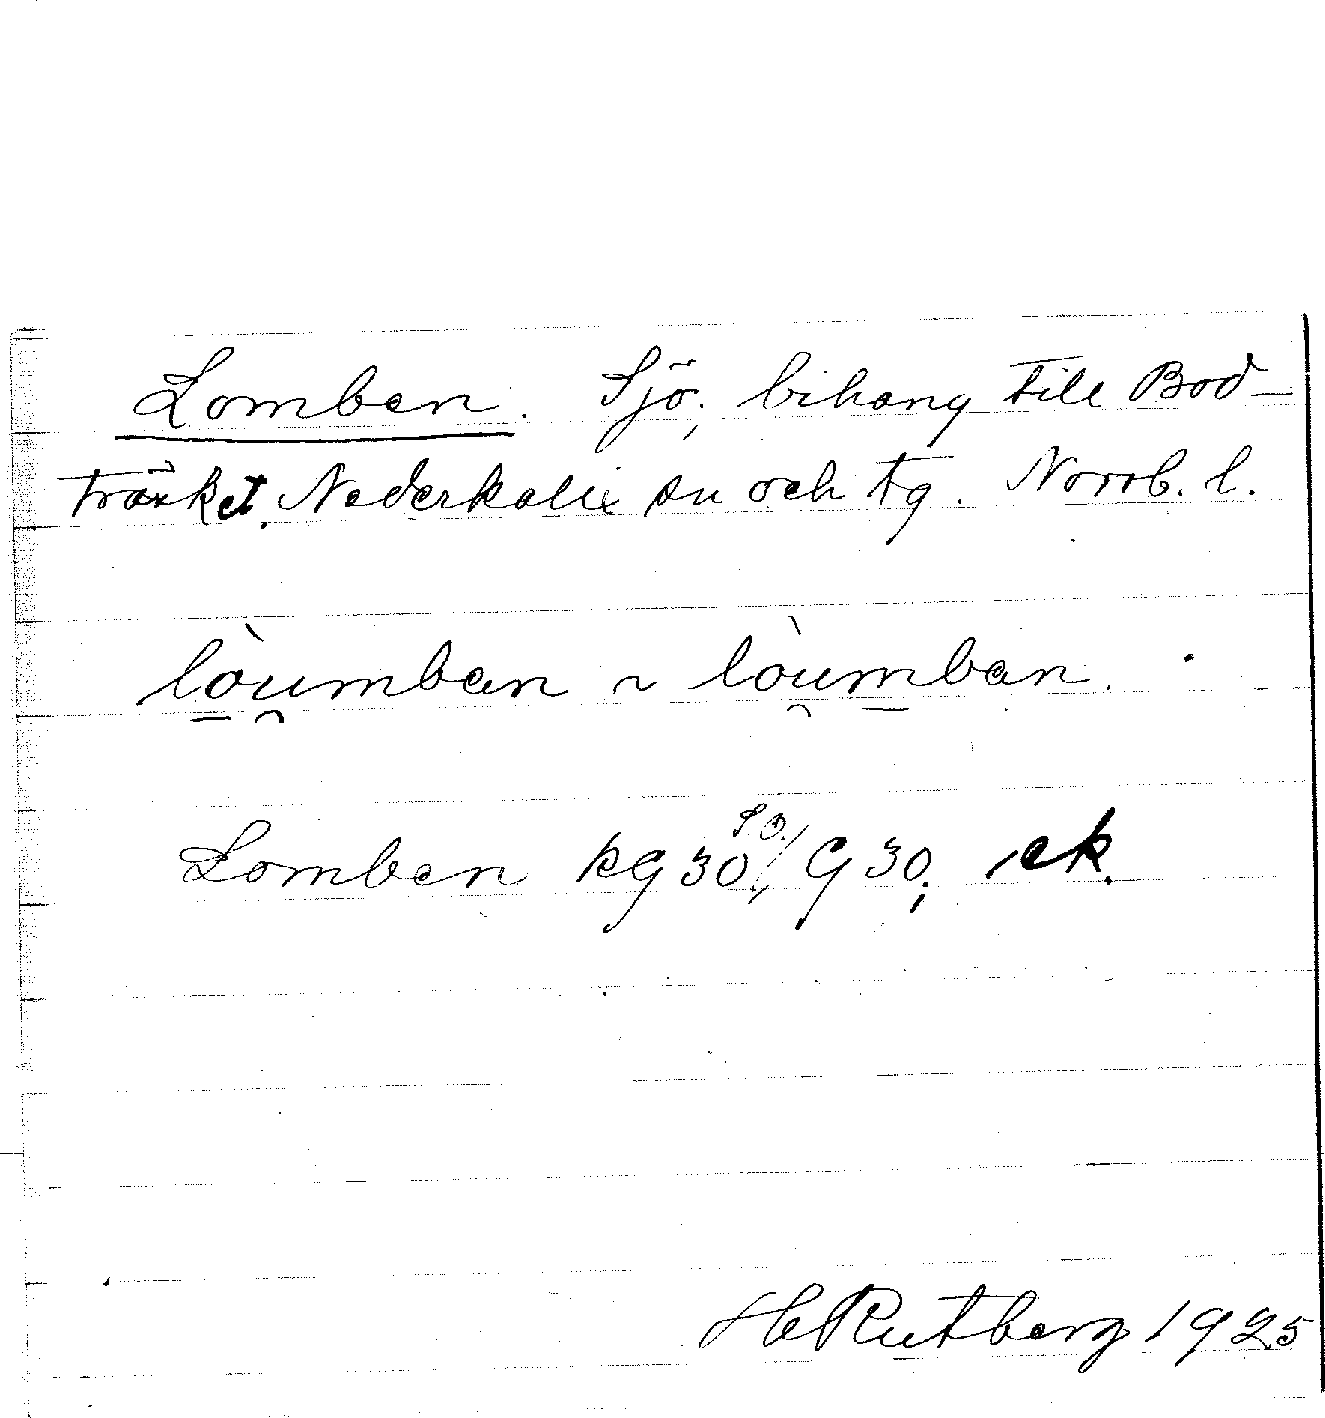 Lomben. Sjö, bihang till Bod-
träsket, Nederkalix sn och tg. Norrb. l.
lò̱u̯mban ~ lòu̯m̱ban.
Lomben kg 30 SO./, G 30; , ek.
H Rutberg 1925